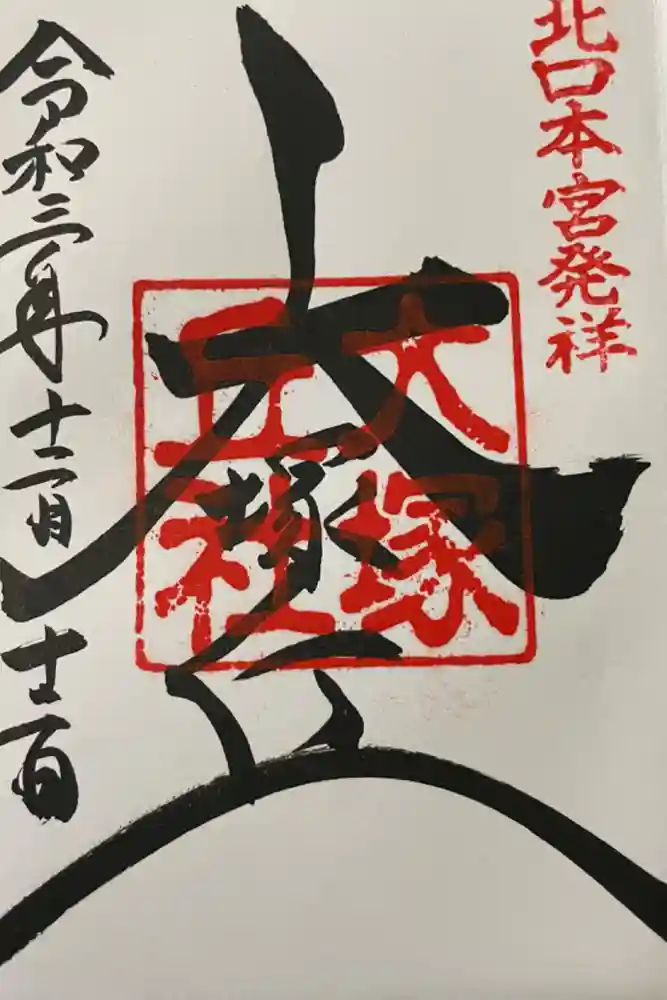 北口本宮発祥
大塚丘
大塚
丘社
令和三年十二月十二日